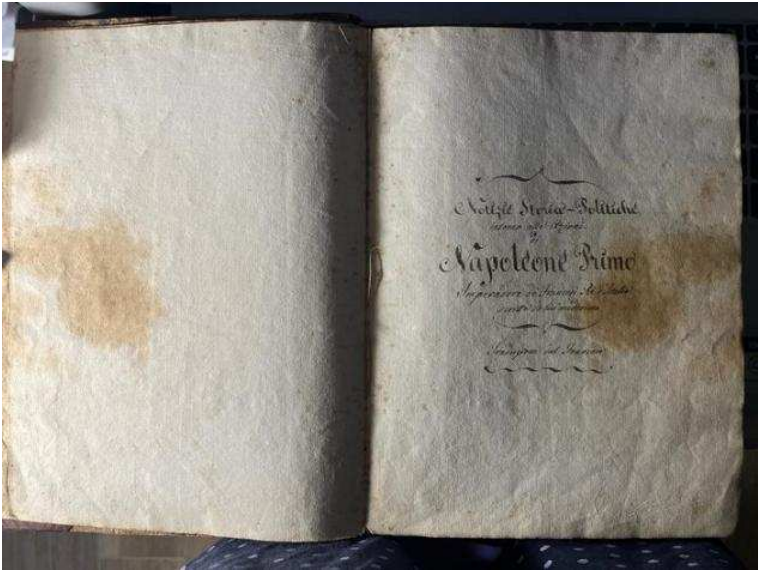 Notizie Storico-Politiche
intorno alle Azioni
di
Napoleone Primo
Imperadore de' Francesi, Re d'Italia
scritte da lui medesimo
Traduzione dal Francese